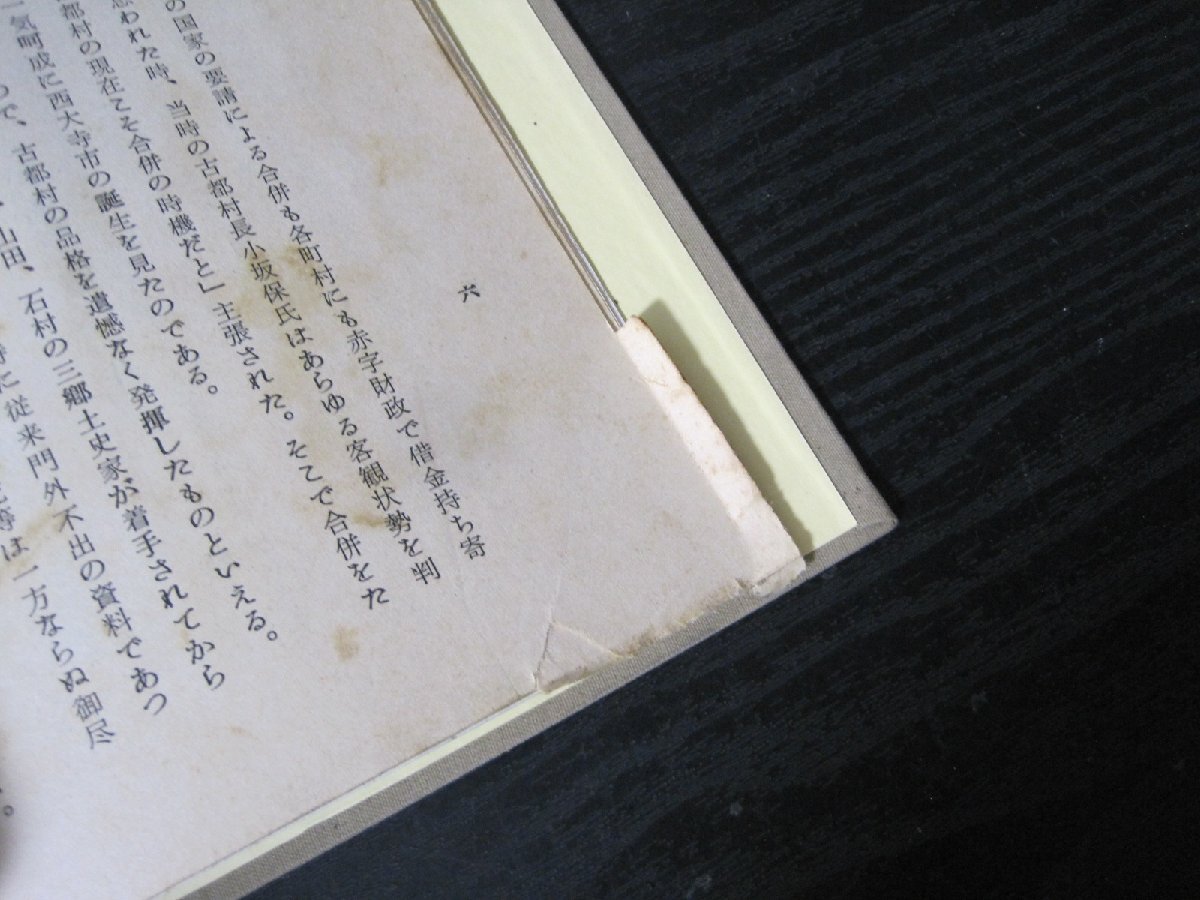 六
の国家の要請による合併も各町村にも赤字財政で借金持ち寄
思われた時、当時の古都村長小坂保氏はあらゆる客観状勢を判
都村の現在こそ合併の時機だと」主張された。そこで合併をた
一気呵成に西大寺市の誕生を見たのである。
で、古都村の品格を遺憾なく発揮したものといえる。
山田、石村の三郷土史家が着手されてから
特に従来門外不出の資料であつ
等は一方ならぬ御尽
。